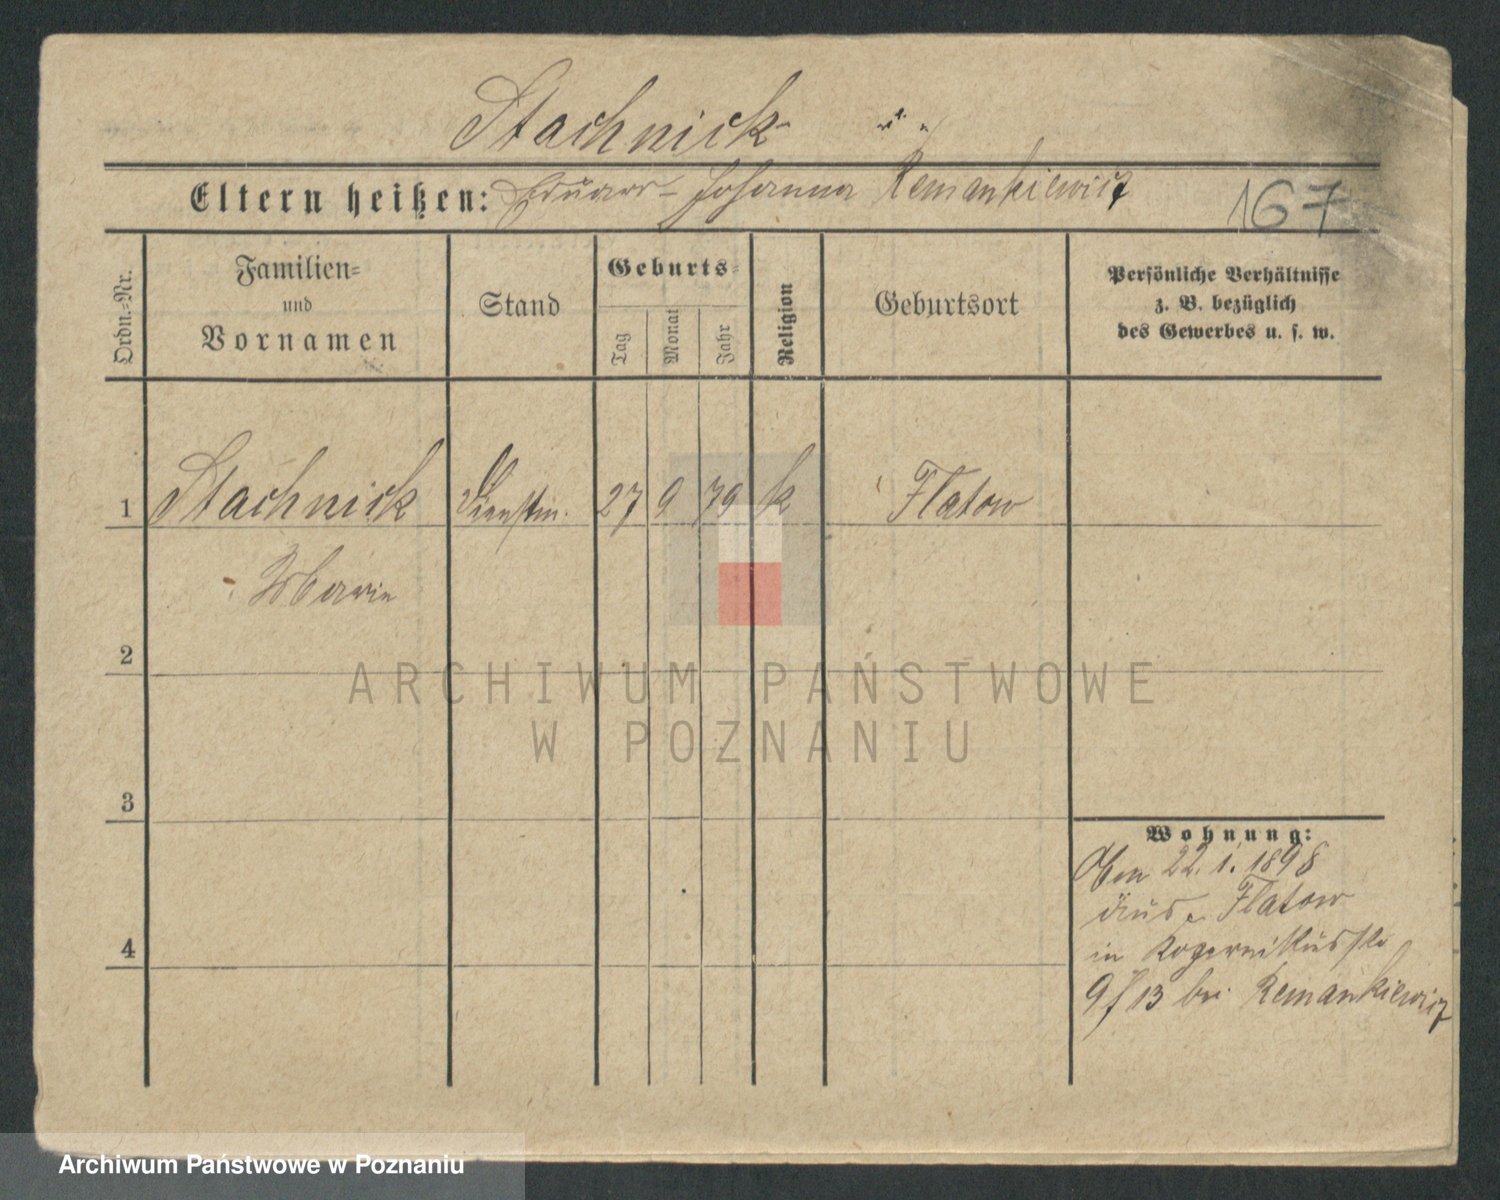 Stachnick
Eltern heißen: Eduard - Johanna Remankiewicz
167
Ordn.-Nr.
Familien-
und
Vornamen
Stand
Geburts-
Tag
Monat
Jahr
Religion
Geburtsort
Persönliche Verhältnisse
z. B. bezüglich
des Gewerbes u. s. w.
1 Stachnick Dienstm. 27 9 79 k Flatow
Marie
2
ARCHIWUM PAŃSTWOWE
W POZNANIU
3
Wohnung:
Am 22.1.1898
aus Flatow
4
in Kopernikusstr
9/13 bei Remankiewicz
Archiwum Państwowe w Poznaniu